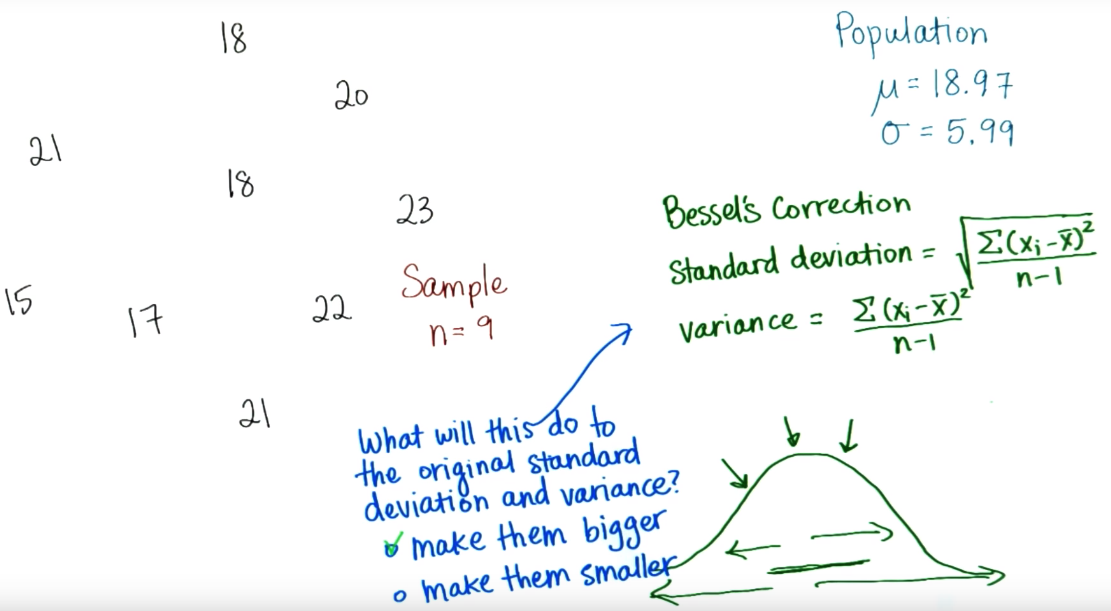 18
20
21
18
23
15
17
22
21
Sample
n = 9
Population
μ = 18.97
σ = 5.99
Bessel's Correction
Standard deviation = √Σ(xᵢ - x̄)² / n-1
variance = Σ(xᵢ - x̄)² / n-1
What will this do to
the original standard
deviation and variance?
make them bigger
make them smaller